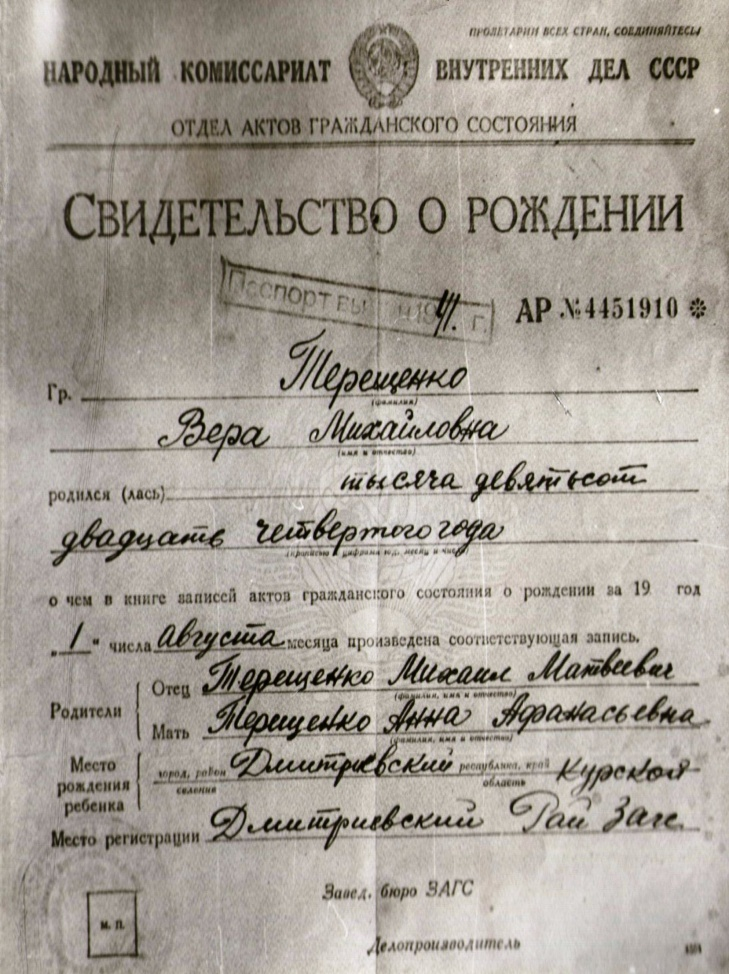 ПРОЛЕТАРИИ ВСЕХ СТРАН, СОЕДИНЯЙТЕСЬ!
НАРОДНЫЙ КОМИССАРИАТ ВНУТРЕННИХ ДЕЛ СССР
ОТДЕЛ АКТОВ ГРАЖДАНСКОГО СОСТОЯНИЯ
СВИДЕТЕЛЬСТВО О РОЖДЕНИИ
Паспорт 19 г.
АР № 4451910 *
Гр. Терещенко
(фамилия)
Вера Михайловна
(имя и отчество)
родился (лась) тысяча девятьсот
двадцать четвертого года
(прописью и цифрами год, месяц и число)
о чем в книге записей актов гражданского состояния о рождении за 19 год
„1“ числа августа месяца произведена соответствующая запись.
Родители
Отец Терещенко Михаил Матвеевич
(фамилия, имя и отчество)
Мать Терещенко Анна Афанасьевна
(фамилия, имя и отчество)
Место рождения ребенка
город, район Дмитриевский республика, край Курской
селения область
Место регистрации Дмитриевский Рай Загс
Завед. бюро ЗАГС
М. П.
Делопроизводитель